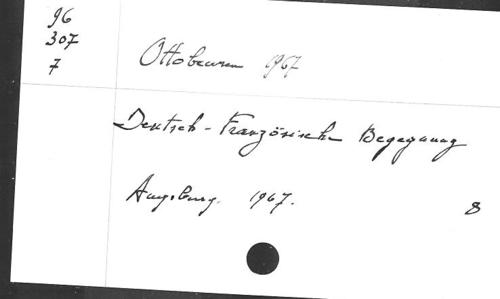 96
307
7
Ottobeuren 1967
Deutsch-Französische Begegnung
Augsburg. 1967.
8